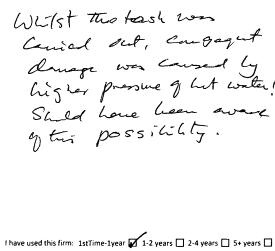 Whilst this task was
carried out, consequent
damage was caused by
higher pressure of hot water!
Should have been aware
of this possibility.
I have used this firm: 1stTime-1year ☑ 1-2 years ☐ 2-4 years ☐ 5+ years ☐